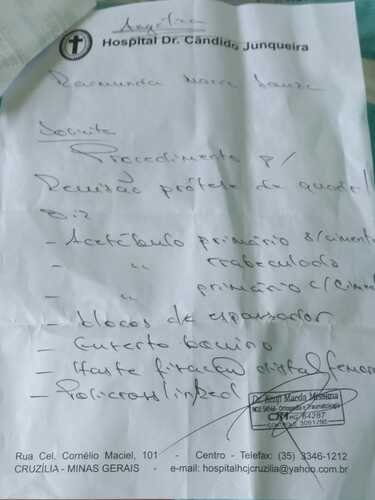 Angélica
Hospital Dr. Cândido Junqueira
Raimunda Maria
Solicito
Procedimento p/
Revisão prótese de quadril
- Acetábulo primário s/ciment
- " trabeculado
- " primário c/cim
- blocos de espaçador
- Enxerto bovino
- Haste fixação distal femor
- Policrosslinked
Dr. Kenji Maeda
Ortopedia e Traumatologia
CRM 64287
Rua Cel. Cornélio Maciel, 101 - Centro - Telefax: (35) 3346-1212
CRUZÍLIA - MINAS GERAIS - e-mail: hospitalhcjcruzilia@yahoo.com.br